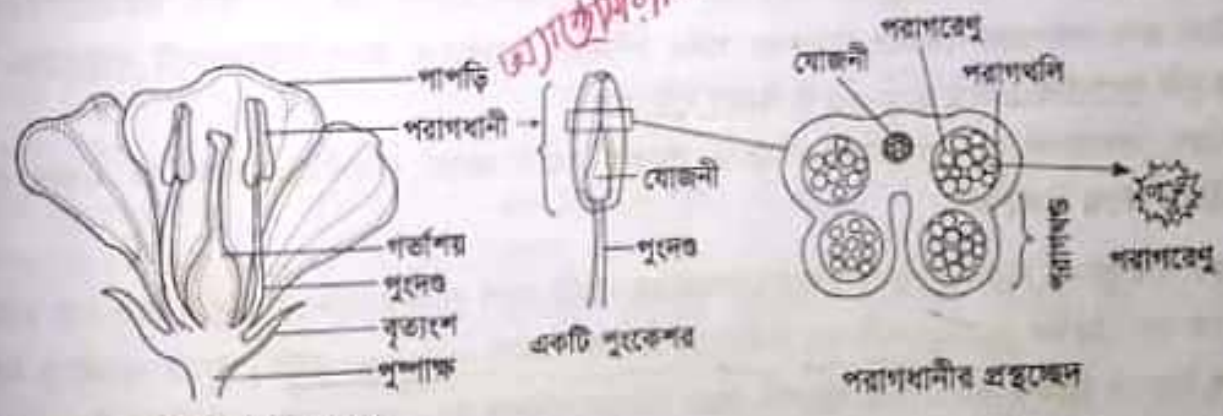 পাপড়ি
পরাগধানী
গর্ভাশয়
পুংদণ্ড
বৃত্যংশ
পুষ্পাক্ষ
যোজনী
পুংদণ্ড
একটি পুংকেশর
যোজনী
পরাগরেণু
পরাগথলি
পরাগখণ্ড
পরাগরেণু
পরাগধানীর প্রস্থচ্ছেদ